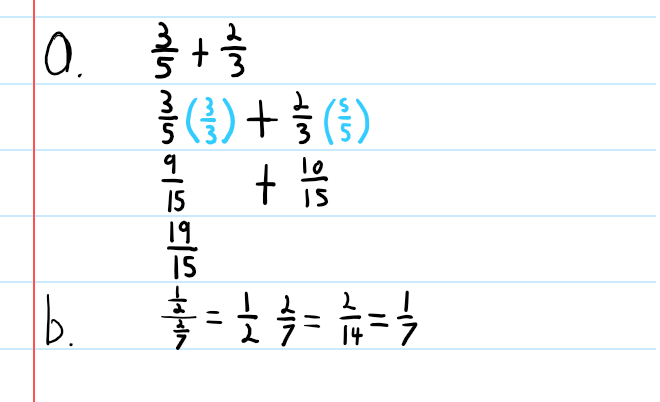 a. 3/5 + 2/3
3/5 (3/3) + 2/3 (5/5)
9/15 + 10/15
19/15
b. (1/2)/(2/7) = 1/2 2/7 = 2/14 = 1/7